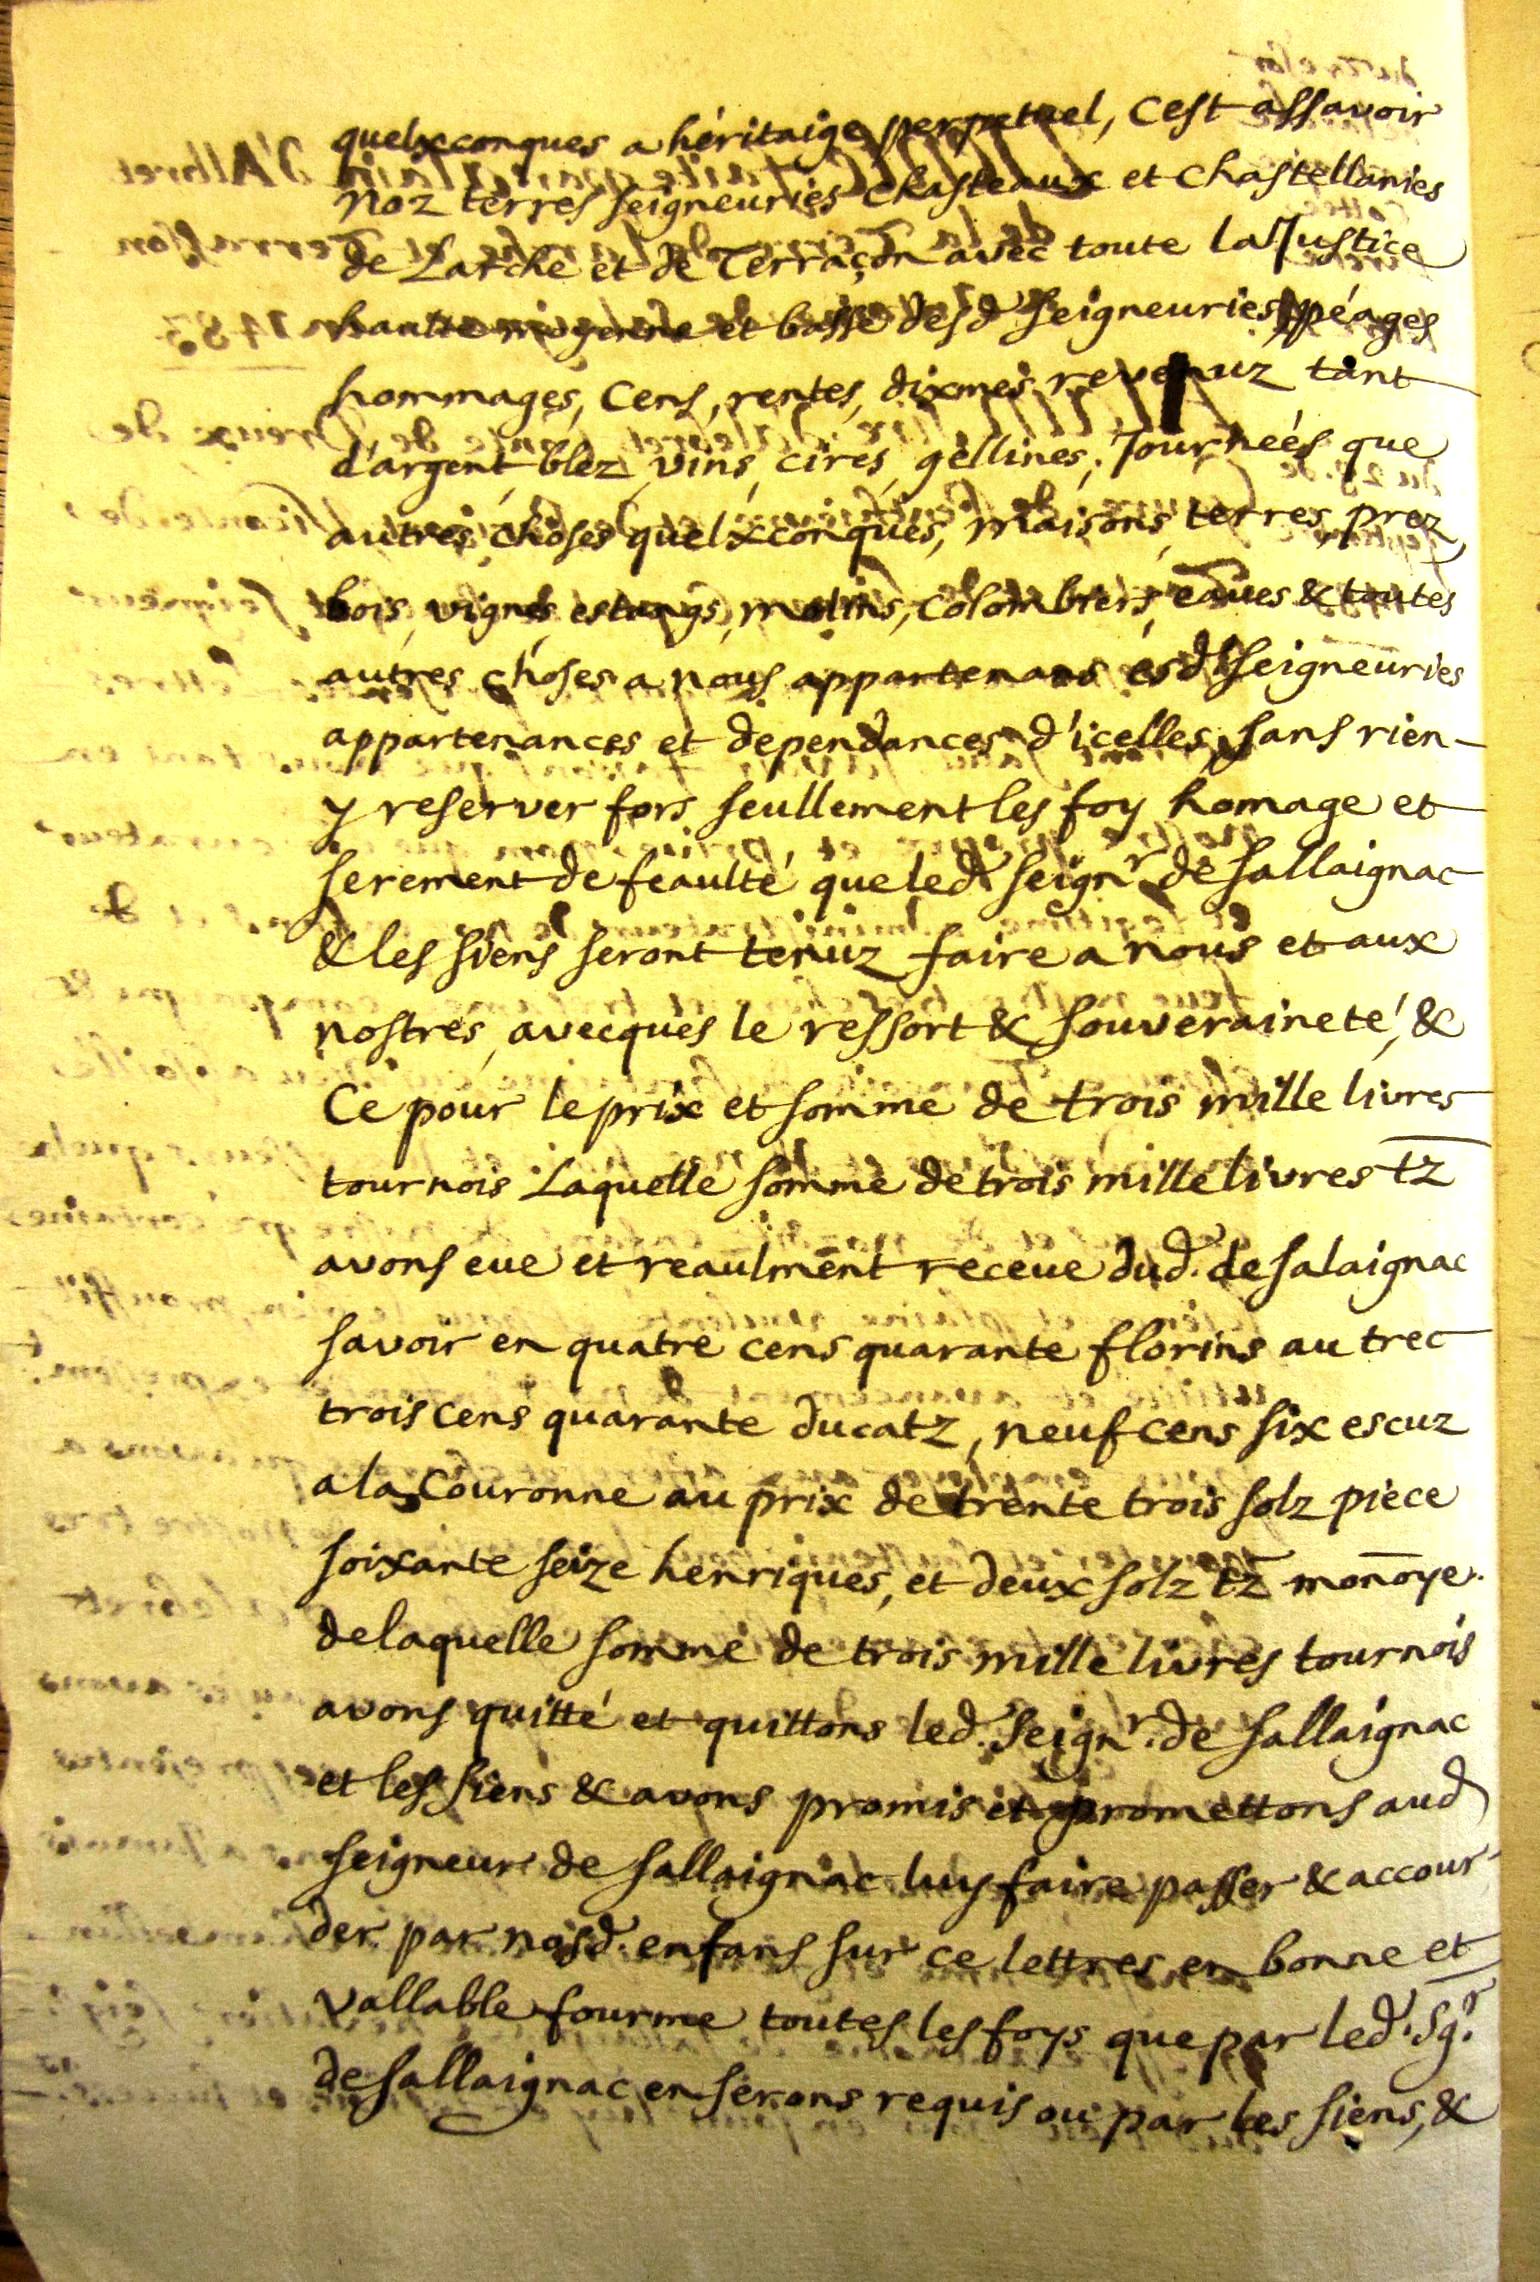 quelxconques a héritaige perpetuel, Cest assavoir
Noz terres seigneuries chasteaux et chastellanies
de Larche et de Terraçon avec toute la Justice
haulte moyenne et basse desd seigneuries, péages
hommages, Cens, rentes, dixmes revenuz tant
d'argent, blez, vins, cires, gellines, Journées que
autres choses quelxconques, maisons, terres, prez,
bois, vignes, estangs, molins, colombiers, eaues & toutes
autres choses a nous appartenans ésd seigneuries
appartenances et dependances d'icelles, sans rien
y reserver fors seullement les foy homage et
serement de feaulté que led. seignr de Sallaignac
& les siens seront tenuz faire a nous et aux
nostres, avecques le ressort & souveraineté, &
Ce pour le prix et somme de trois mille livres
tournois Laquelle somme de trois mille livres tz
avons eue et reaulment receue dud. de Salaignac
savoir en quatre cens quarante florins au trec
trois cens quarante ducatz, neuf cens six escuz
a la Couronne au prix de trente trois solz piece
soixante seize henriques, et deux solz tz monoye.
de laquelle somme de trois mille livres tournois
avons quitté et quittons led. Seignr. de Sallaignac
et les siens & avons promis et promettons aud
seigneur de Sallaignac luy faire passer & accour-
der par nosd. enfans sur ce lettres en bonne et
vallable fourme toutes les foys que par led. Sgr.
de Sallaignac en serons requis ou par les siens, &